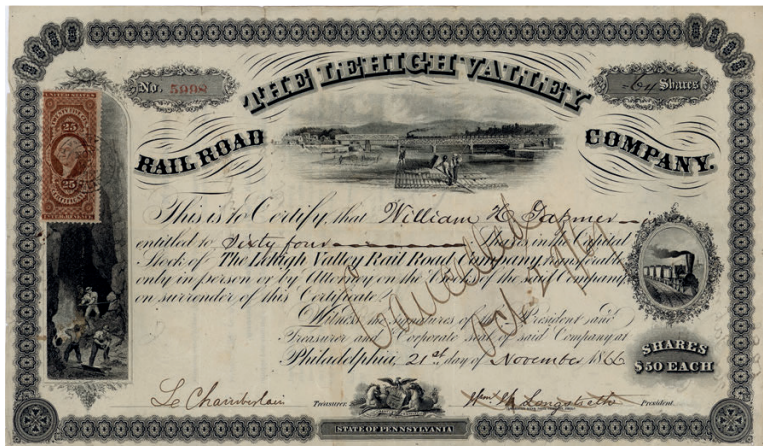 THE LEHIGH VALLEY
No. 5998
64 Shares
RAIL ROAD COMPANY.
UNITED STATES
25 25
This is to Certify, that William H. Gapmer is
entitled to Sixty four Shares in the Capital
Stock of The Lehigh Valley Rail Road Company, transferable
only in person or by Attorney on the Books of the said Company,
on surrender of this Certificate.
Witness the signatures of the President and
Treasurer and Corporate seal of said Company at
Philadelphia, 21st day of November 1866
Cancelled
SHARES
$50 EACH
Le Chamberlain Treasurer. Wm. W. Longstreth President.
STATE OF PENNSYLVANIA